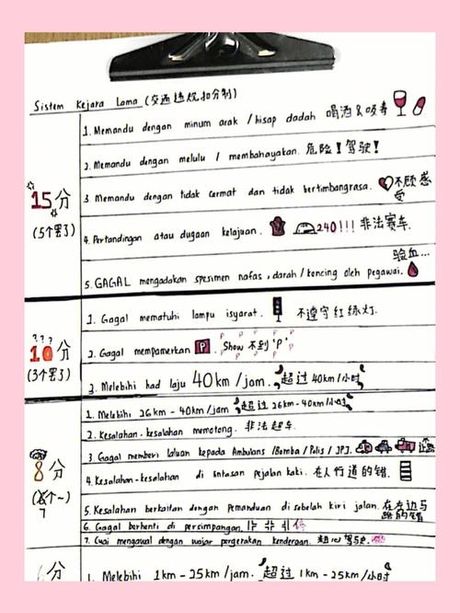 Sistem Kejara Lama (交通违规扣分制)
15分
(5个罢了)
1. Memandu dengan minum arak / hisap dadah 喝酒&吸毒
2. Memandu dengan melulu / membahayakan. 危险!驾驶!
3 Memandu dengan tidak cermat dan tidak bertimbangrasa. 不顾感受
4. Pertandingan atau dugaan kelajuan. 240!!! 非法赛车.
验血...
5. GAGAL mengadakan spesimen nafas, darah / kencing oleh pegawai.
? ? ?
10分
(3个罢了)
1. Gagal mematuhi lampu isyarat. 不遵守红绿灯.
2. Gagal mempamerkan P. Show 不到 'P'
3. Melebihi had laju 40km /jam. 超过 40km/小时
8分
7
1. Melebihi 26km - 40km /jam 超过 26km - 40km/小时
2. Kesalahan-kesalahan memotong. 非法超车.
3. Gagal memberi laluan kepada Ambulans /Bomba / Polis / JPJ.
4. Kesalahan-kesalahan di lintasan pejalan kaki. 在人行道的错.
5. Kesalahan berkaitan dengan pemanduan di sebelah kiri jalan. 在左边马路的错
6. Gagal berhenti di persimpangan.
7. Cuai mengawal dengan wajar pergerakan kenderaan.
6分
1. Melebihi 1km - 25km /jam. 超过 1km - 25km/小时